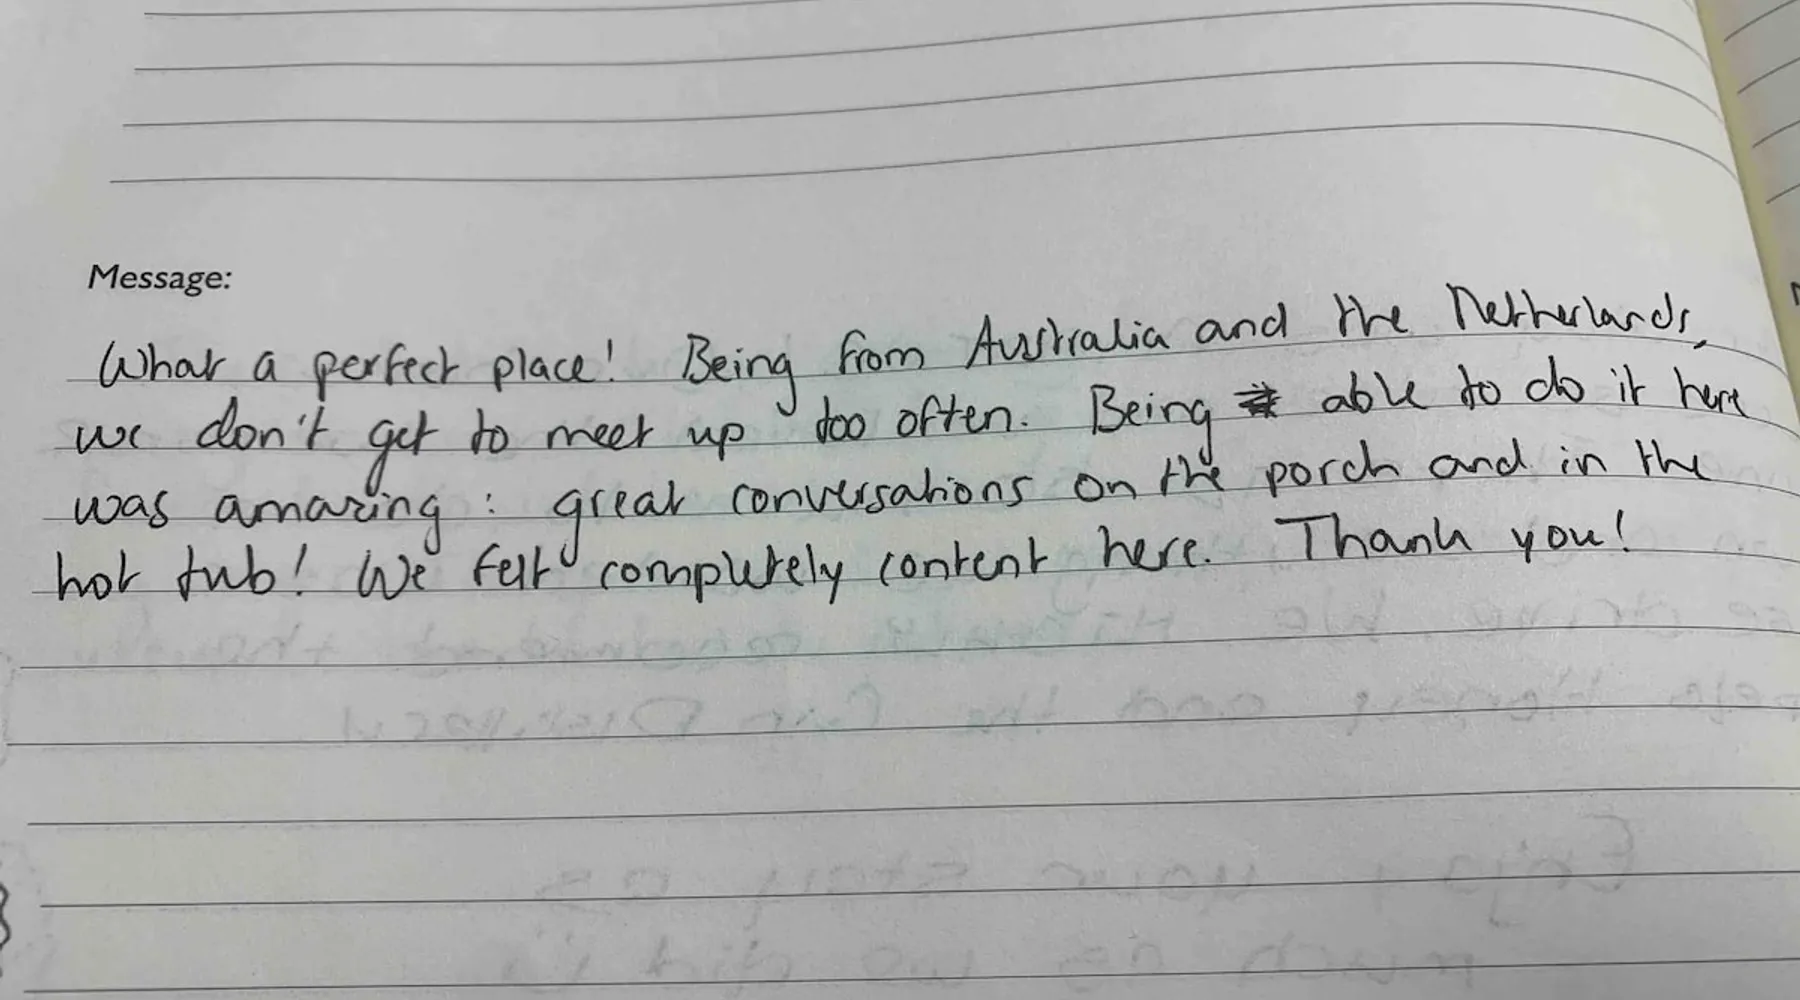 Message:
What a perfect place! Being from Australia and the Netherlands,
we don't get to meet up too often. Being able to do it here
was amazing : great conversations on the porch and in the
hot tub! We felt completely content here. Thank you!